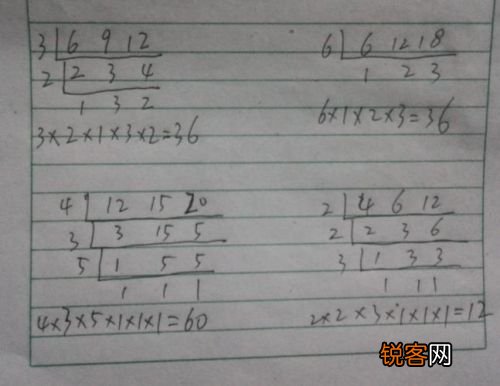 3 6 9 12
2 2 3 4
1 3 2
3×2×1×3×2=36
6 6 12 18
1 2 3
6×1×2×3=36
4 12 15 20
3 3 15 5
5 1 5 5
1 1 1
4×3×5×1×1×1=60
2 4 6 12
2 2 3 6
3 1 3 3
1 1 1
2×2×3×1×1×1=12
锐客网